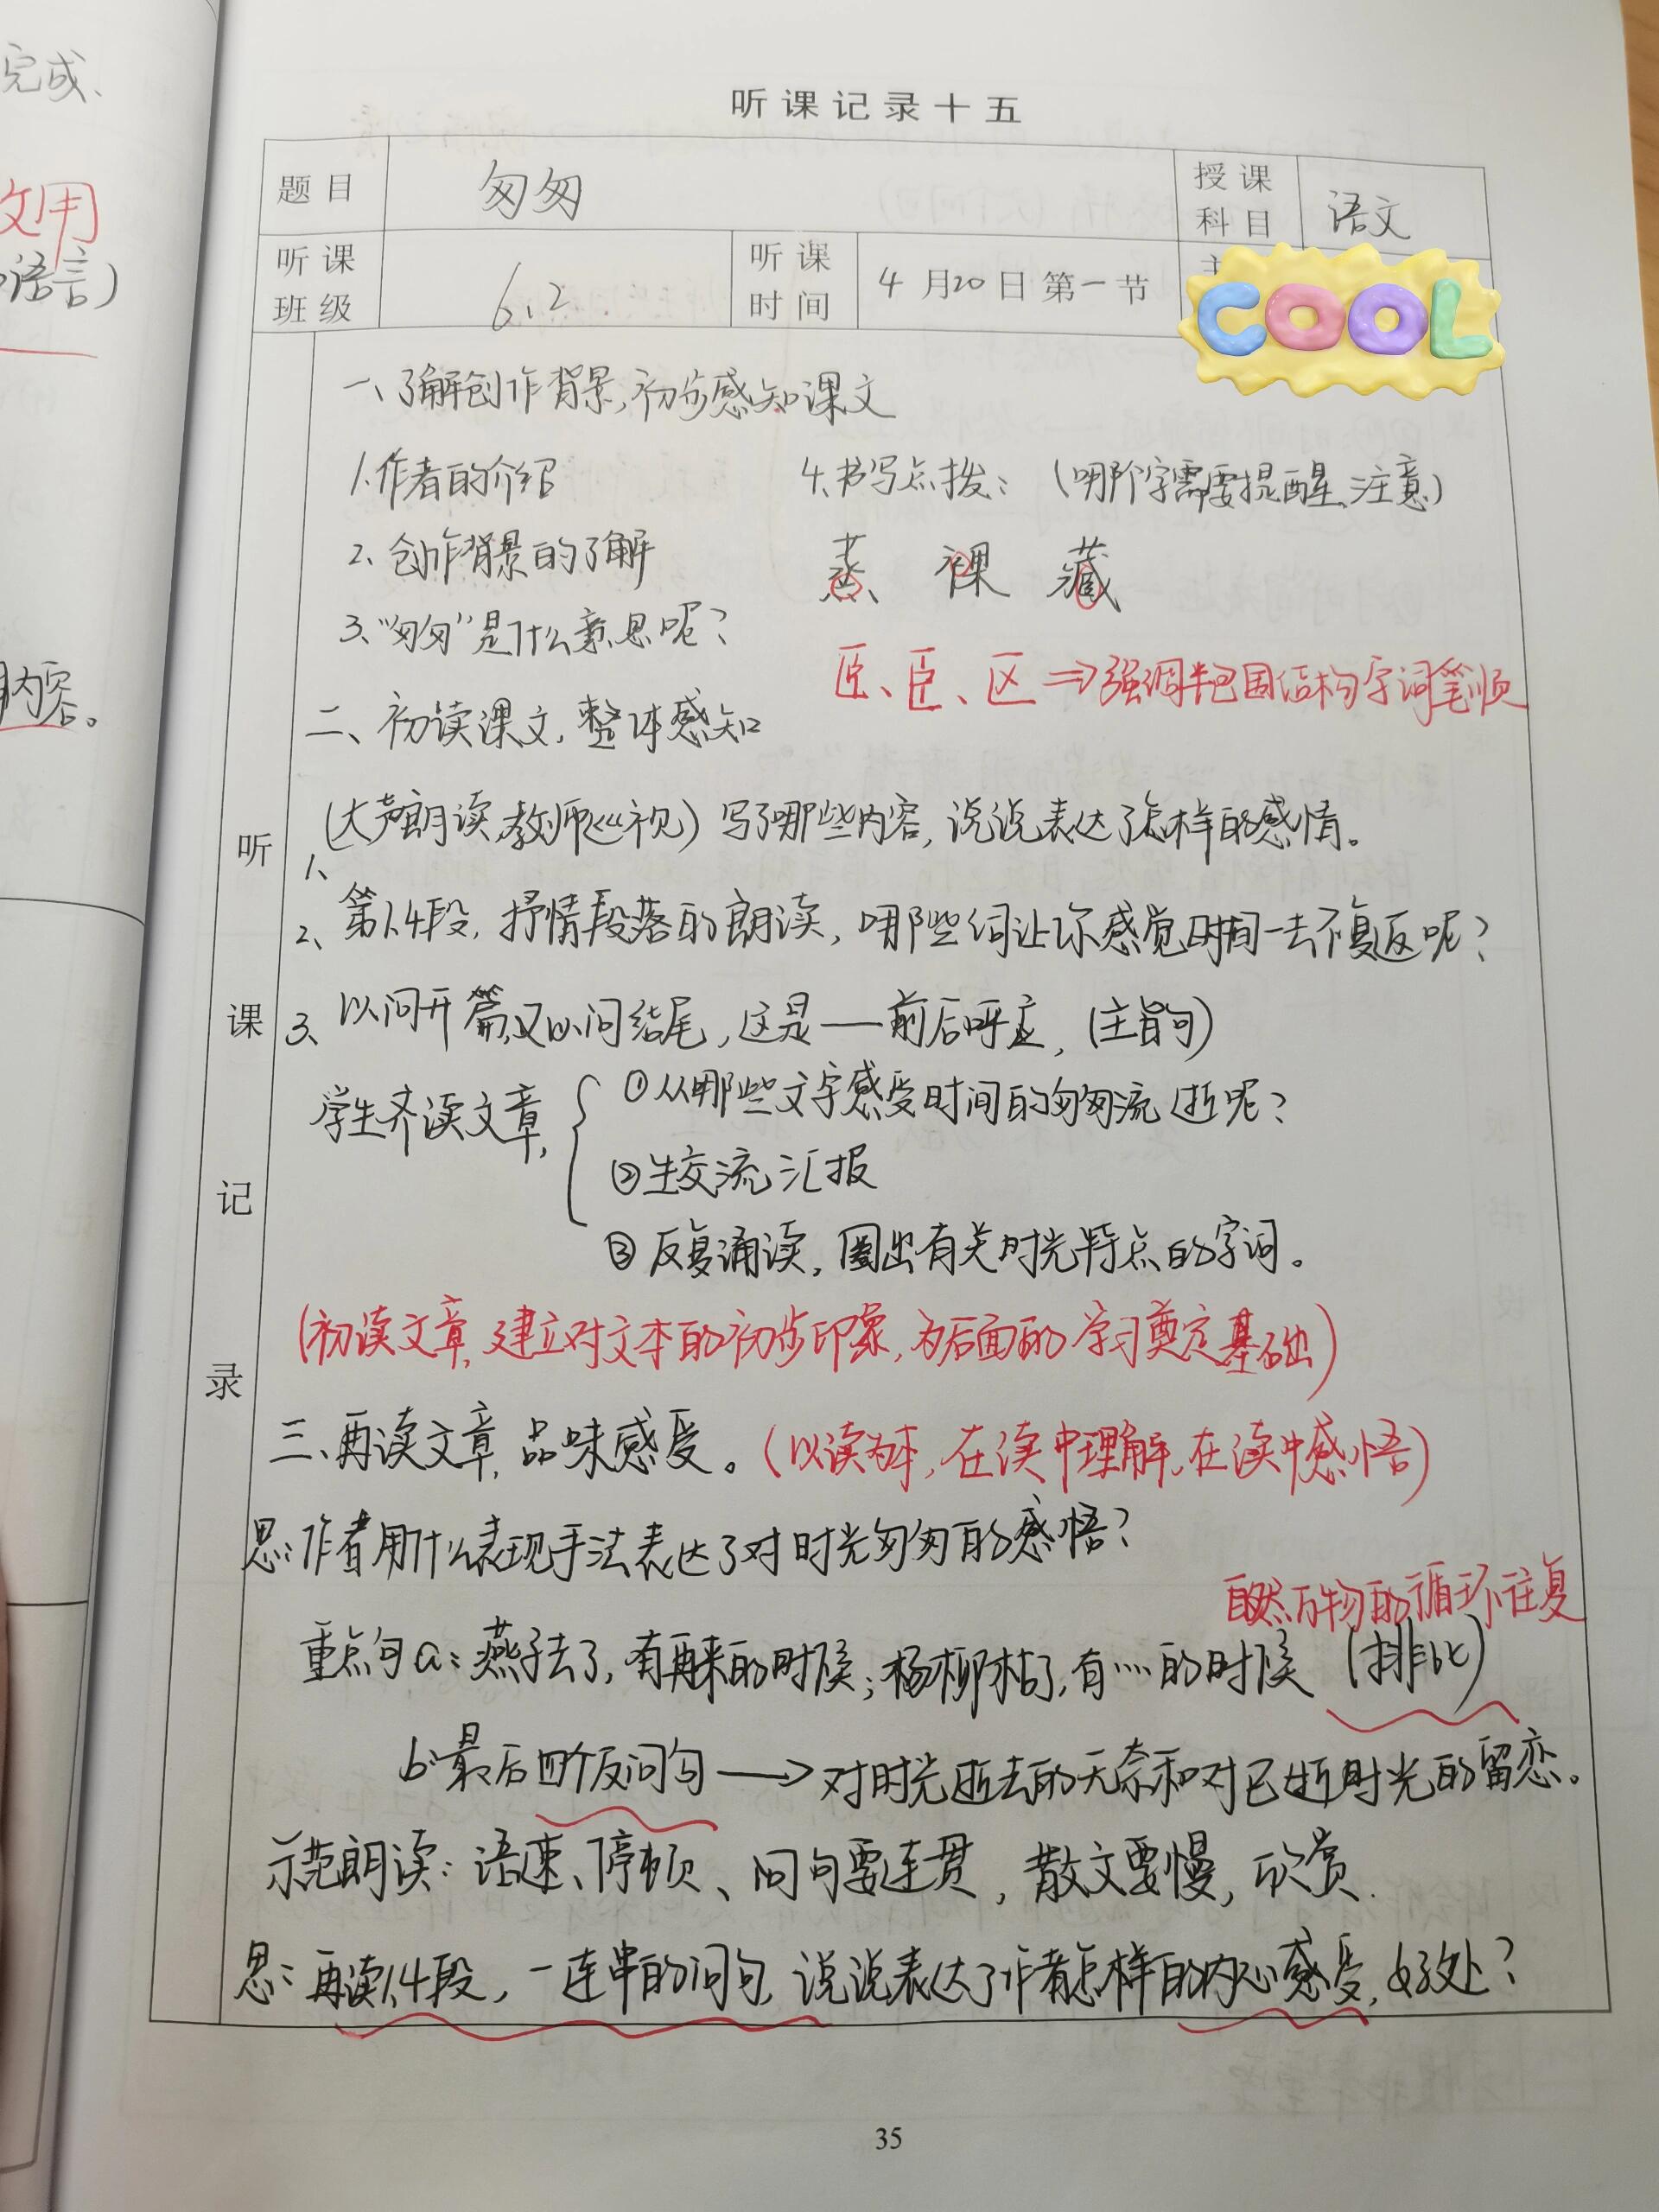 完成、
改用
语言)
内容。
听课记录十五
题目
匆匆
授课
科目
语文
听课
班级
6.2
听课
时间
4月20日第一节
COOL
听
课
记
录
一、了解创作背景,初步感知课文
1.作者的介绍
4.书写点拨:(哪个字需要提醒、注意)
2、创作背景的了解
蒸 裸 藏
3、“匆匆”是什么意思呢?
匠、臣、区⇒强调半包围结构字词笔顺
二、初读课文,整体感知
1、(大声朗读,教师巡视)写了哪些内容,说说表达了怎样的感情。
2、第1.4段,抒情段落的朗读,哪些词让你感觉时间一去不复返呢?
3、以问开篇,又以问结尾,这是——前后呼应,(主旨句)
学生齐读文章,
①从哪些文字感受时间的匆匆流逝呢?
②生交流汇报
③反复诵读,圈出有关时光特点的字词。
(初读文章,建立对文本的初步印象,为后面的学习奠定基础)
三、再读文章,品味感受。(以读为本,在读中理解,在读中感悟)
思:作者用什么表现手法表达了对时光匆匆的感悟?
自然万物的循环往复
重点句a:燕子去了,有再来的时候;杨柳枯了,有……的时候 (排比)
b:最后四个反问句→对时光逝去的无奈和对已逝时光的留恋。
示范朗读:语速、停顿、问句要连贯,散文要慢,欣赏.
思:再读1.4段,一连串的问句,说说表达了作者怎样的内心感受,好处?
35